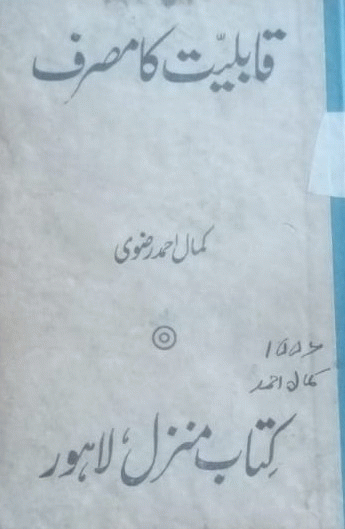 قابلیّت کا مصرف
کمال احمد رضوی
کمال احمد
کتاب منزل، لاہور